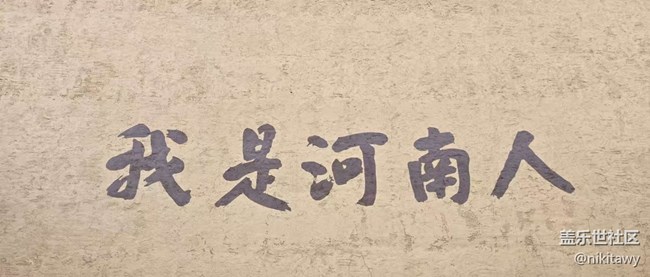 我是河南人
盖乐世社区
@nikitawy